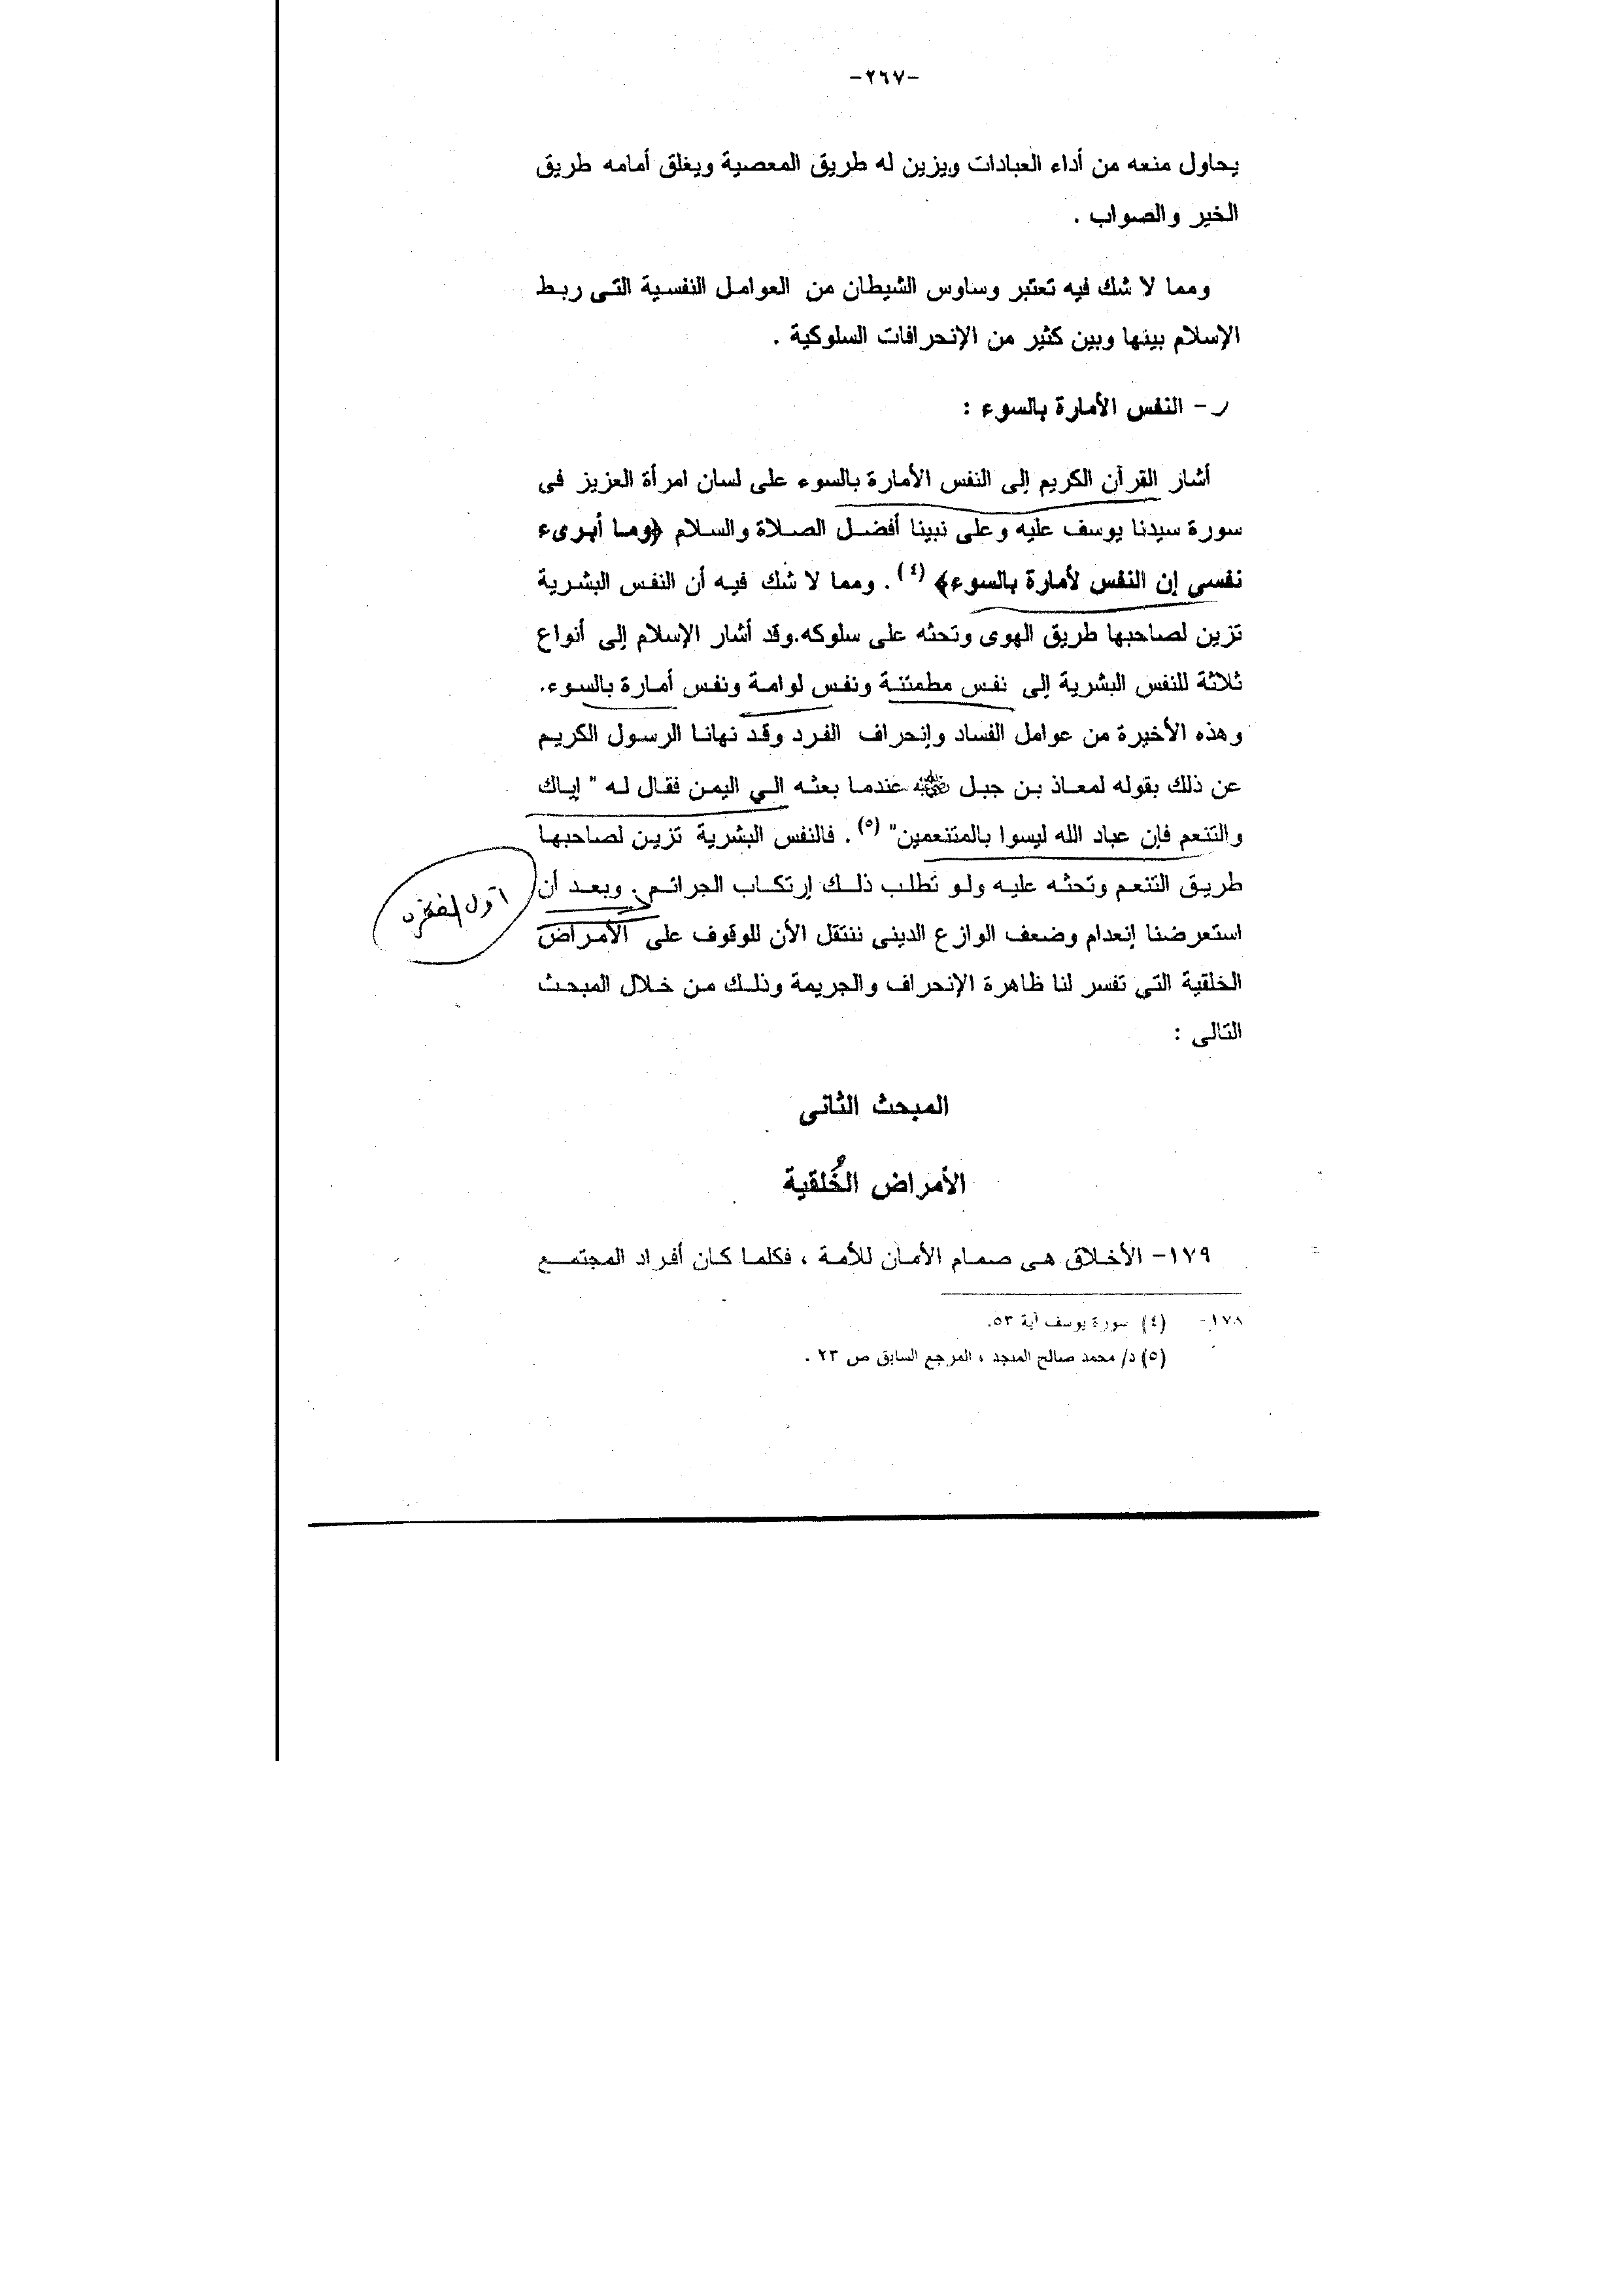 -٢٦٧-
يحاول منعه من أداء العبادات ويزين له طريق المعصية ويغلق أمامه طريق
الخير والصواب .
ومما لا شك فيه تعتبر وساوس الشيطان من العوامل النفسية التى ربط
الإسلام بينها وبين كثير من الإنحرافات السلوكية .
ر - النفس الأمارة بالسوء :
أشار القرآن الكريم إلى النفس الأمارة بالسوء على لسان امرأة العزيز فى
سورة سيدنا يوسف عليه وعلى نبينا أفضل الصلاة والسلام ﴿وما أبرىء
نفسى إن النفس لأمارة بالسوء﴾ (٤) . ومما لا شك فيه أن النفس البشرية
تزين لصاحبها طريق الهوى وتحثه على سلوكه.وقد أشار الإسلام إلى أنواع
ثلاثة للنفس البشرية إلى نفس مطمئنة ونفس لوامة ونفس أمارة بالسوء.
وهذه الأخيرة من عوامل الفساد وإنحراف الفرد وقد نهانا الرسول الكريم
عن ذلك بقوله لمعاذ بن جبل رضي الله عنه عندما بعثه الي اليمن فقال له " إياك
والتنعم فإن عباد الله ليسوا بالمتنعمين" (٥) . فالنفس البشرية تزين لصاحبها
طريق التنعم وتحثه عليه ولو تطلب ذلك إرتكاب الجرائم . وبعد أن
أول الفقرة
استعرضنا إنعدام وضعف الوازع الدينى ننتقل الأن للوقوف على الأمراض
الخلقية التي تفسر لنا ظاهرة الإنحراف والجريمة وذلك من خلال المبحث
التالى :
المبحث الثانى
الأمراض الخُلقية
١٧٩- الأخلاق هى صمام الأمان للأمة ، فكلما كان أفراد المجتمع
١٧٨- (٤) سورة يوسف آية ٥٣.
(٥) د/ محمد صالح المنجد ، المرجع السابق ص ٢٣ .